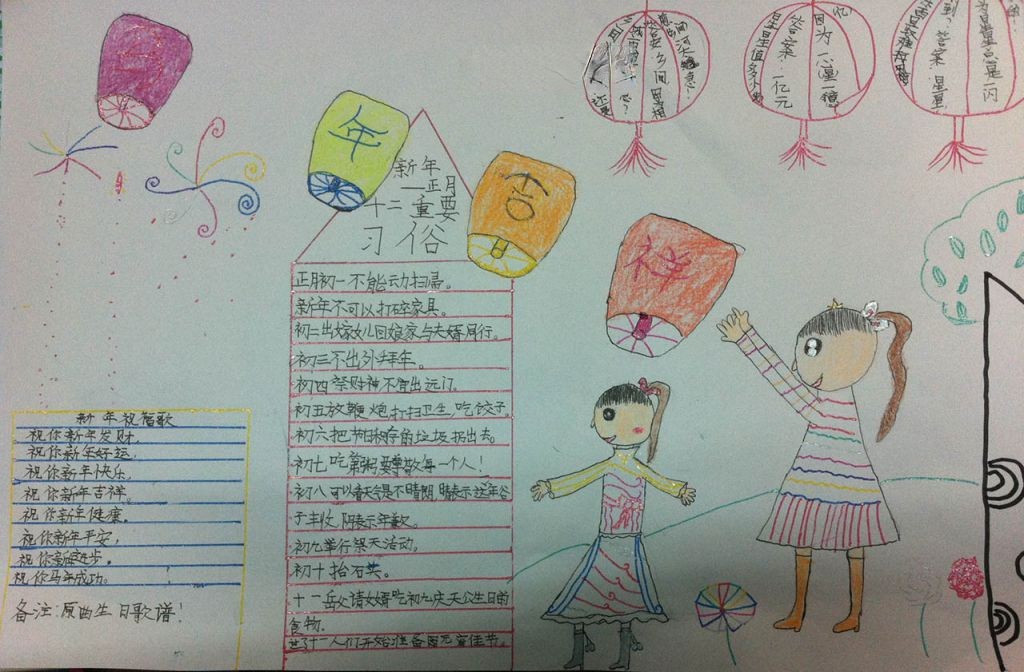 年
吉
祥
新年
一正月
十二重要
习俗
正月初一不能动扫帚。
新年不可以打碎家具。
初二出嫁女儿回娘家与夫婿同行。
初三不出外拜年。
初四祭财神不宜出远门。
初五放鞭炮打扫卫生,吃饺子。
初六把节日积存的垃圾扔出去。
初七吃 粥要尊敬每一个人!
初八可以看天气是不晴朗,晴表示这年谷
子丰收,阴表示年歉。
初九举行祭天活动。
初十抬石头。
十一岳父请女婿吃初九庆天公生日的
食物。
人们开始准备 元宵佳节。
新年祝福歌
祝你新年发财,
祝你新年好运,
祝你新年快乐,
祝你新年吉祥。
祝你新年健康。
祝你新年平安,
祝你新年进步。
祝你马年成功。
备注:原曲生日歌谱!
星星值多少
答案:一亿元
因为心星一億
到?答案:星星
为星星总是一闪